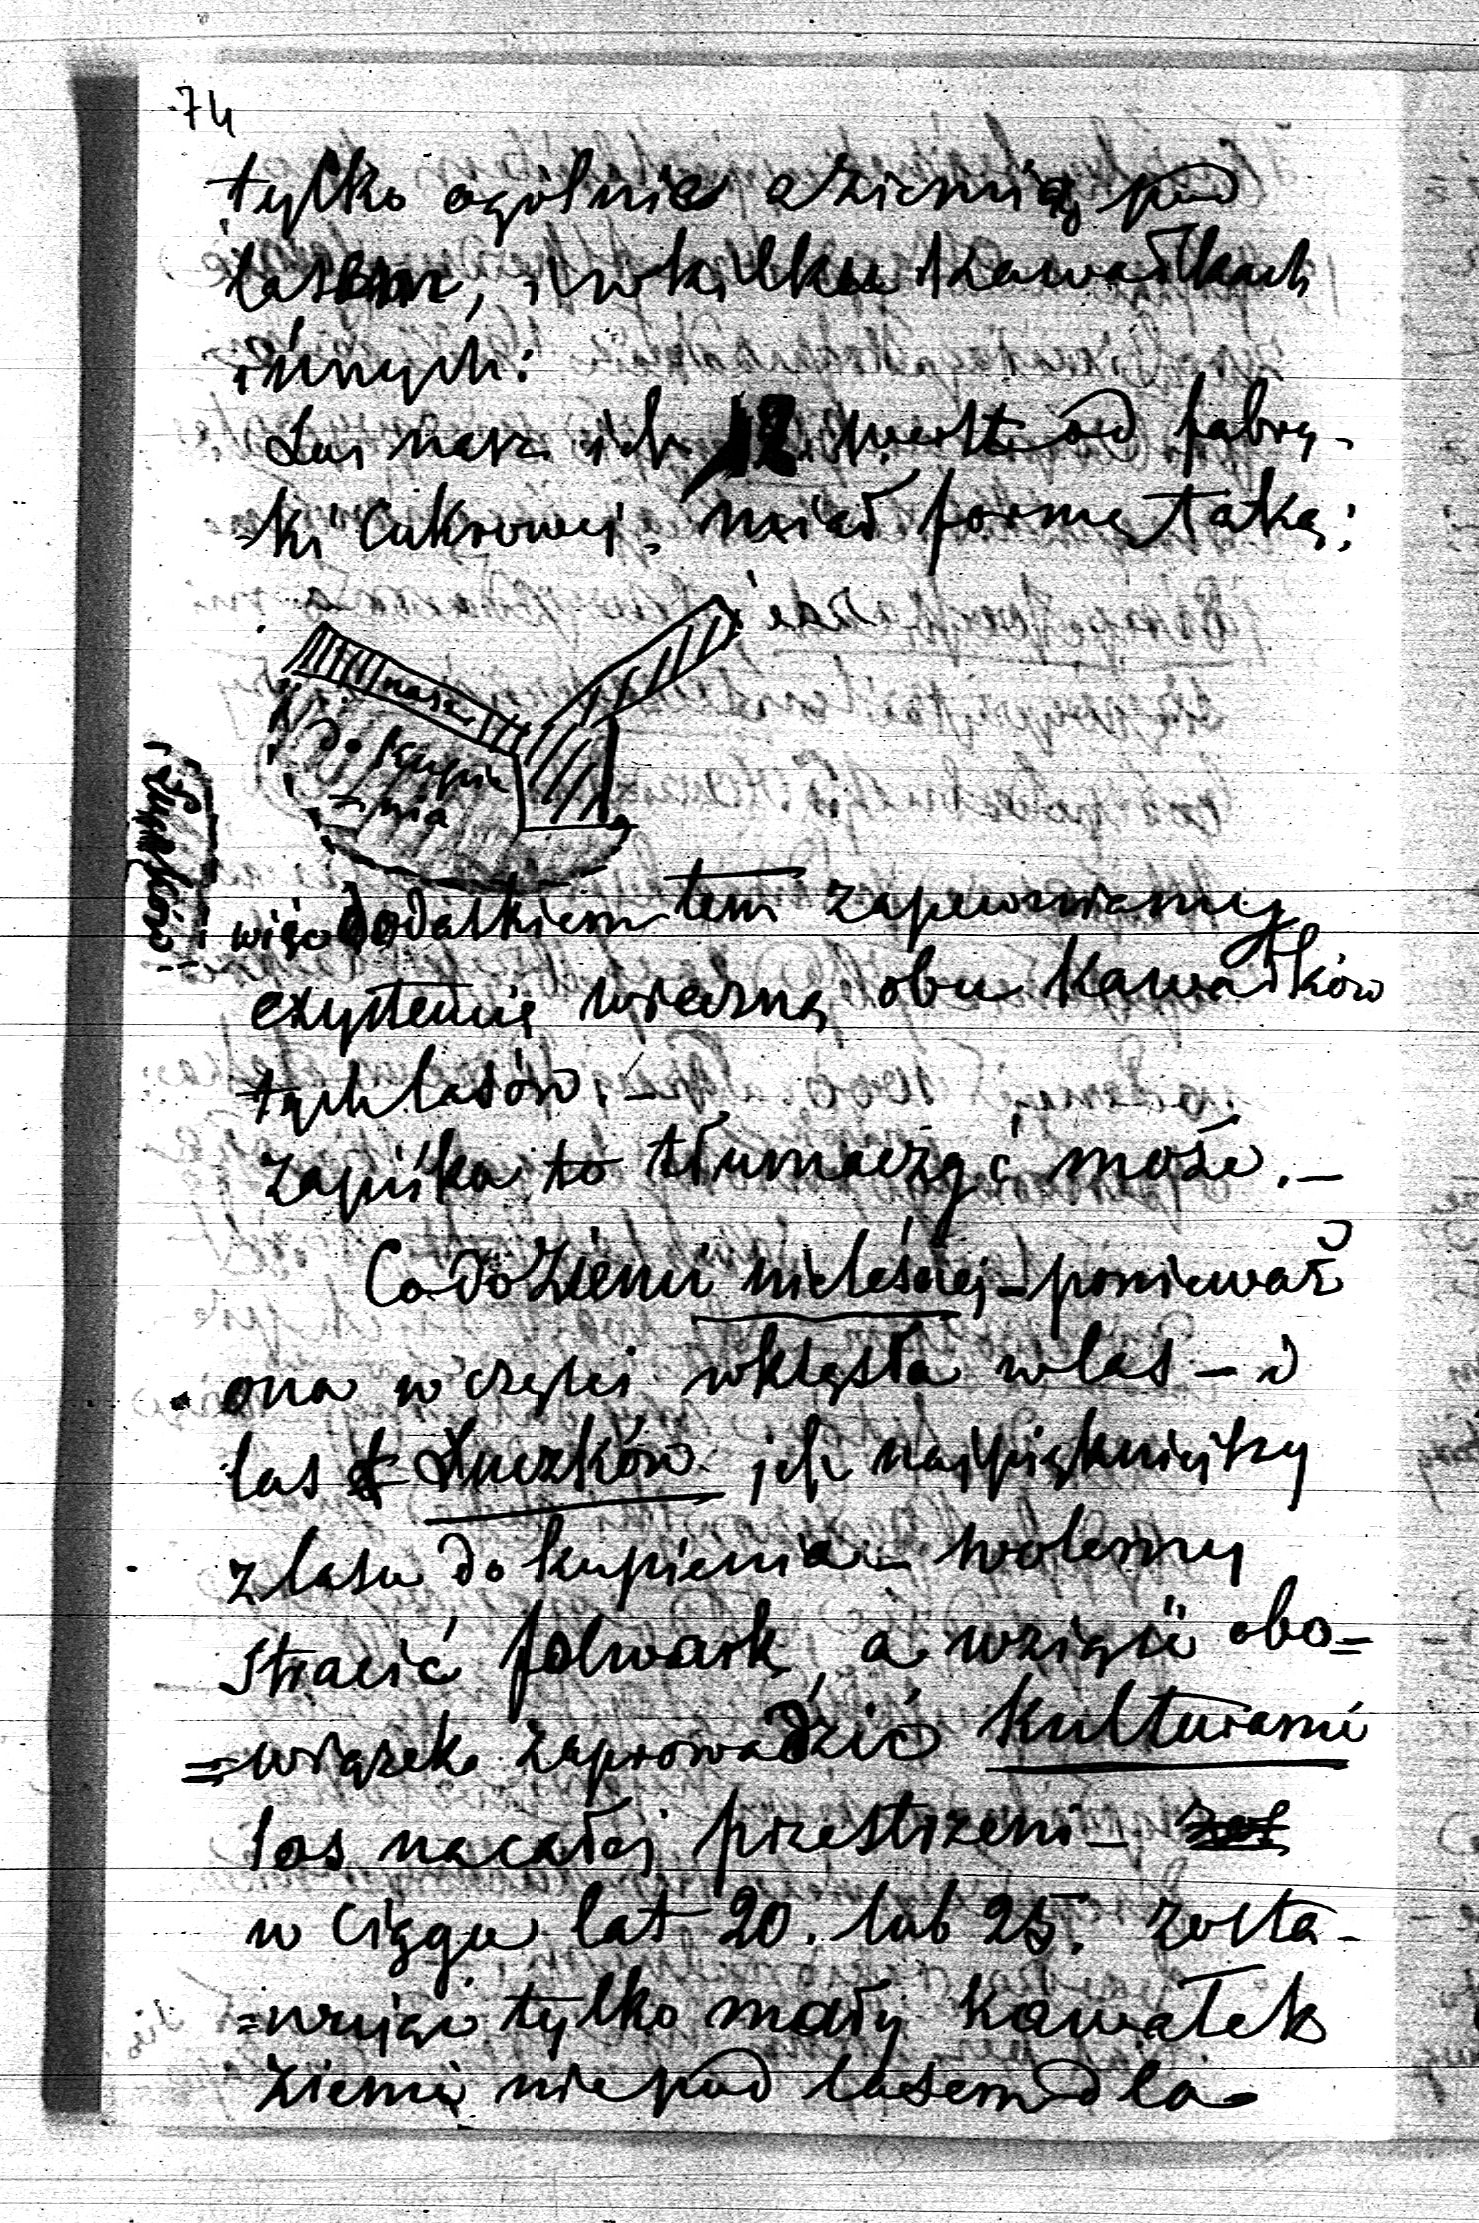 74
tylko ogólnie o ziemię pod
lasem, i w kilku kawałkach
innych:
Las nasz ich 12 wiorst od fabry-
ki Cukrowej. miał formę taką:
nasze
Do kupie
-nia
Łuczków
więc dodatkiem tem zapewniamy
exystencię wieczną obu kawałków
tych lasów. –
Zapiska to tłumaczyć może. –
Co do Ziemi nieleśnej – ponieważ
ona w części wklęsła w las – i
las Łuczków jest najpiękniejszy
z lasu do kupienia – wolemy
stracić folwark, a wziąść obo=
=wiązek zaprowadzić kulturami
las na całej przestrzeni –
w ciągu lat 20. lub 25. zosta-
=wując tylko mały kawałek
ziemi nie pod lasem dla